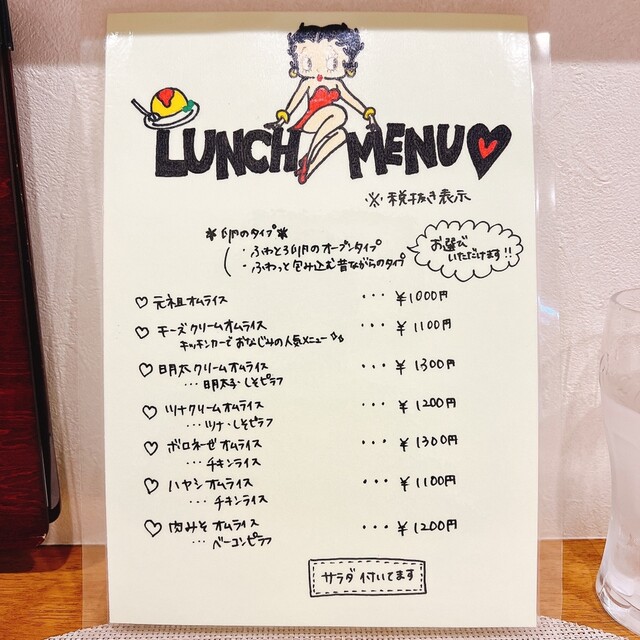 LUNCH MENU♡
※税抜き表示
＊卵のタイプ＊
・ふわとろ卵のオープンタイプ
・ふわっと包み込む昔ながらのタイプ
お選び
いただけます!!
♡ 元祖オムライス ・・・ ¥1000円
♡ チーズクリームオムライス ・・・ ¥1100円
キッチンカーでおなじみの人気メニュー
♡ 明太クリームオムライス ・・・ ¥1300円
・・・明太子・しそピラフ
♡ ツナクリームオムライス ・・・ ¥1200円
・・・ツナ・しそピラフ
♡ ボロネーゼオムライス ・・・ ¥1300円
・・・チキンライス
♡ ハヤシオムライス ・・・ ¥1100円
・・・チキンライス
♡ 肉みそオムライス ・・・ ¥1200円
・・・ベーコンピラフ
サラダ付いてます